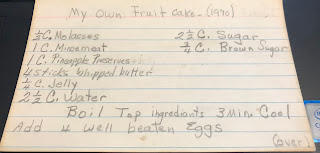 My Own Fruit cake - (1970)
½ C. Molasses
1 C. Mincemeat
1 C. Pineapple Preserves
4 sticks whipped butter
½ C. Jelly
2½ C. Water
2½ C. Sugar
¾ C. Brown Sugar
Boil Top ingredients 3 Min: Cool
Add 4 well beaten Eggs
(over)